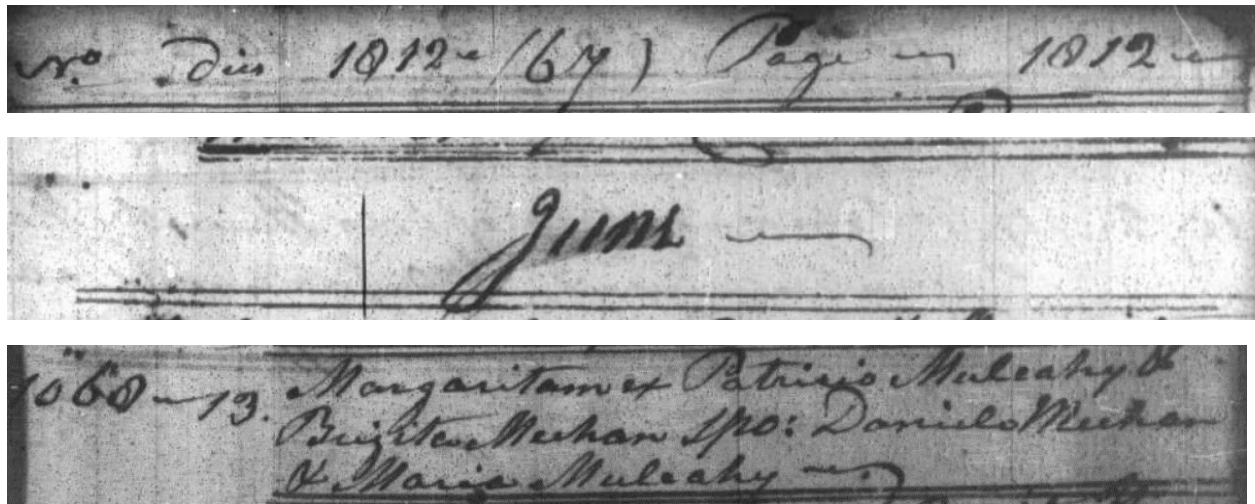 No Dies 1812 (67) Page 1812
June
1068 - 13. Margaritam ex Patricio Mulcahy &
Brigita Meehan spo: Daniele Meehan
& Maria Mulcahy